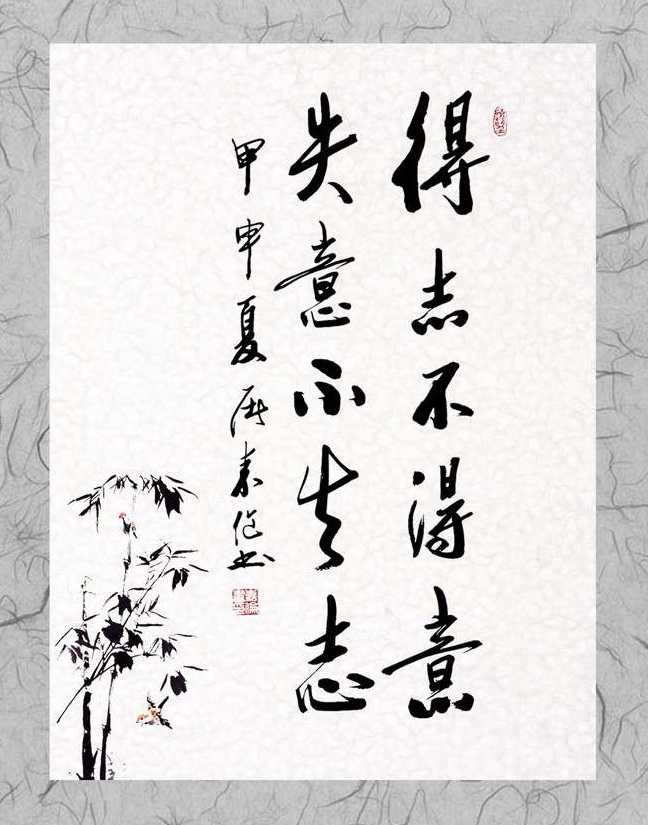 得志不得意
失意不失志
甲申夏 秦 书